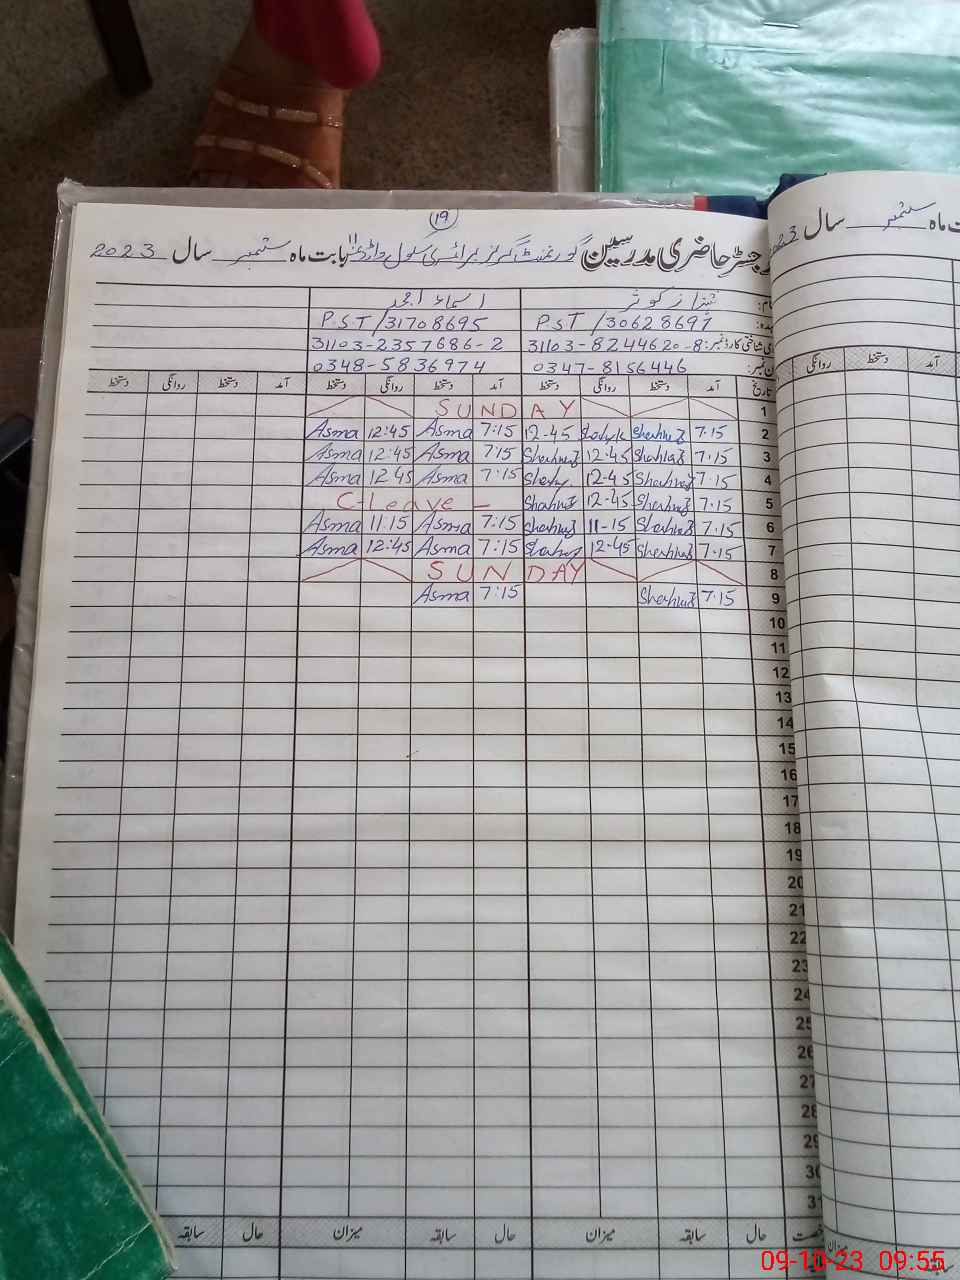 19
رجسٹر حاضری مدرسین گورنمنٹ گرلز پرائمری سکول بابت ماہ ستمبر سال 2023
ستمبر سال 2023
شہناز کوثر اسماء امجد
P.S.T /30628697 P.S.T /31708695
31103-8244620-8 31103-2357686-2
0347-8156446 0348-5836974
تاریخ آمد دستخط روانگی دستخط آمد دستخط روانگی دستخط آمد دستخط روانگی دستخط
روانگی دستخط آمد
1 SUNDAY
2 7.15 Shahnaz 12-45 7:15 Asma 12:45 Asma
3 7.15 Shahnaz 12.45 Shahnaz 7:15 Asma 12:45 Asma
4 7.15 Shahnaz 12.45 7:15 Asma 12:45 Asma
5 7.15 Shahnaz 12-45 Shahnaz C-Leave -
6 7.15 Shahnaz 11-15 Shahnaz 7:15 Asma 11:15 Asma
7 7.15 Shahnaz 12.45 Shahnaz 7:15 Asma 12:45 Asma
8 SUNDAY
9 7.15 Shahnaz 7:15 Asma
10
11
12
13
14
15
16
17
18
19
20
21
22
23
24
25
26
27
28
29
30
31
حال سابقہ میزان حال سابقہ میزان حال سابقہ
میزان سابقہ
09-10-23 09:55